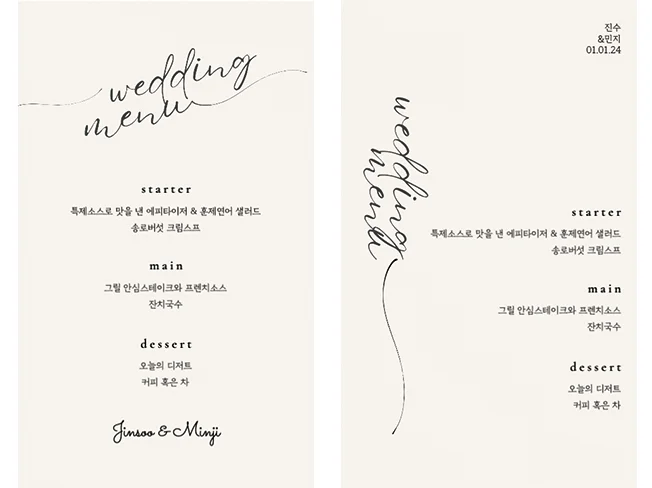 wedding
menu
starter
특제소스로 맛을 낸 에피타이저 & 훈제연어 샐러드
송로버섯 크림스프
main
그릴 안심스테이크와 프렌치소스
잔치국수
dessert
오늘의 디저트
커피 혹은 차
Jinsoo & Minji
진수
&민지
01.01.24
wedding
menu
starter
특제소스로 맛을 낸 에피타이저 & 훈제연어 샐러드
송로버섯 크림스프
main
그릴 안심스테이크와 프렌치소스
잔치국수
dessert
오늘의 디저트
커피 혹은 차